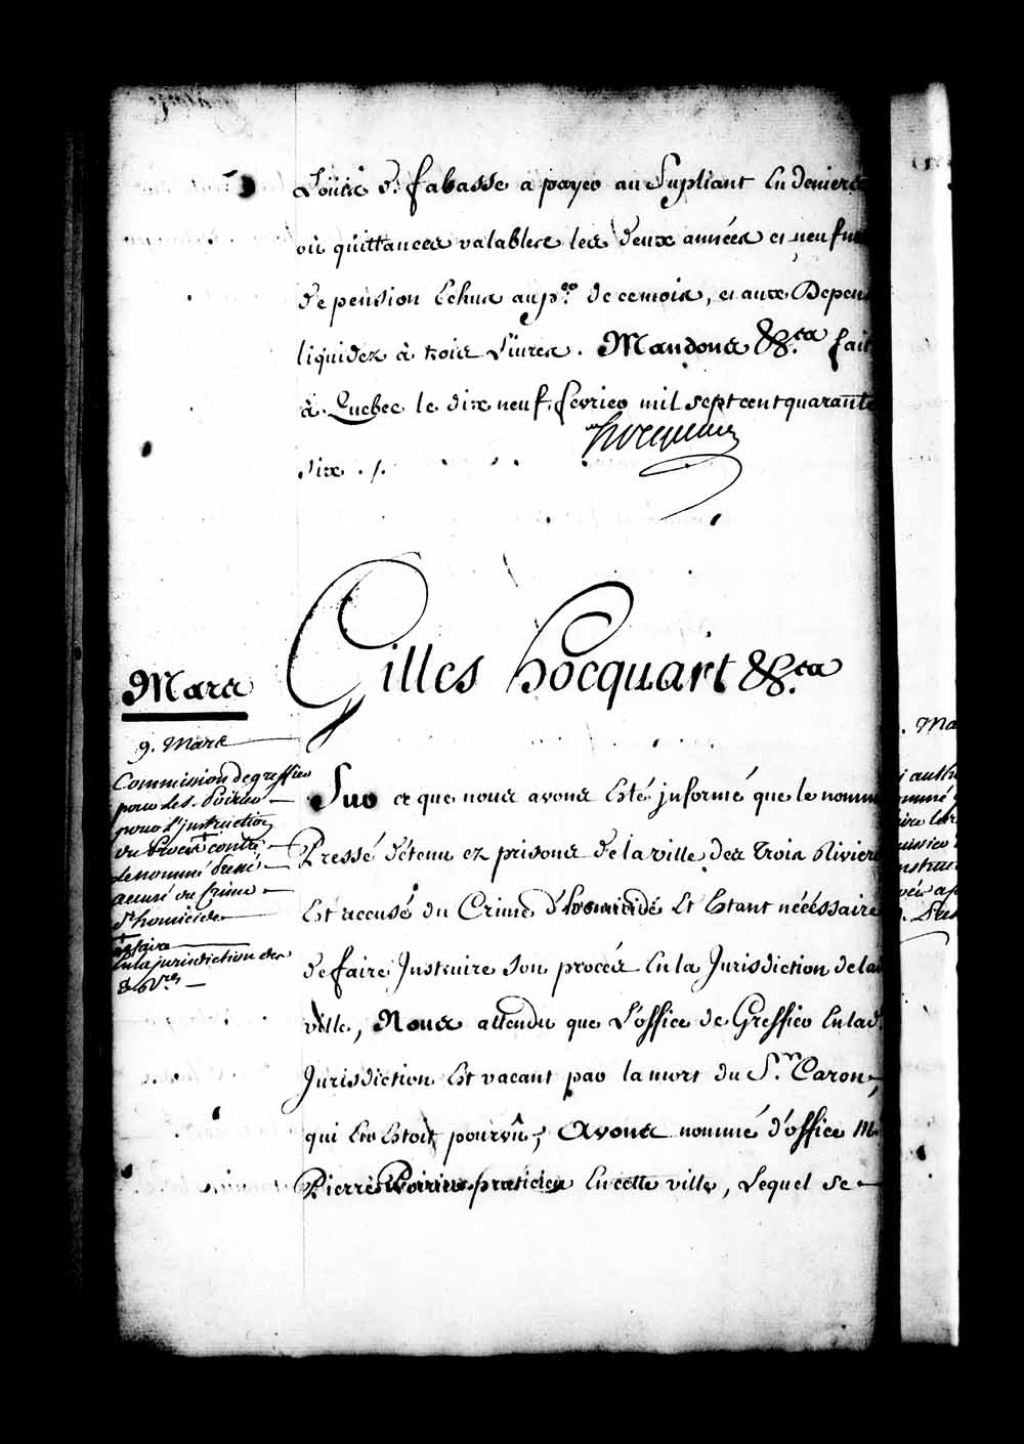 Loüis de fabasse a payer au Supliant En deniers
où quittances valables les deux années et neuf
de pension Echus au pr. de ce mois, et aux Depens
liquidez à trois Livres. Mandons &c.ca fait
à Quebec le dix neuf fevrier mil sept cent quarante
Six ./.
hocquart
Gilles hocquart &c.ca
Mars
9. Mars
Commission de greffier
pour Le S. Poirier
pour l'instruction
du Procés contre
Le nommé Pressé
accusé du Crime
d'homicide
a faire
En la jurisdiction des
3. Vres
Sur ce que nous avons Esté informé que le nommé
Pressé détenu ez prisons de la ville des Trois Rivieres
Est accusé du Crime d'homicide Et Estant nécéssaire
de faire Instruire Son procés En la Jurisdiction de lad.
ville, Nous attendu que L'office de Greffier En lad.
Jurisdiction Est vacant par la mort du S.r Caron,
qui En Etoit pourvû; Avons nommé d'office M.
Pierre Poirier praticien En cette ville, Lequel se
. Ma